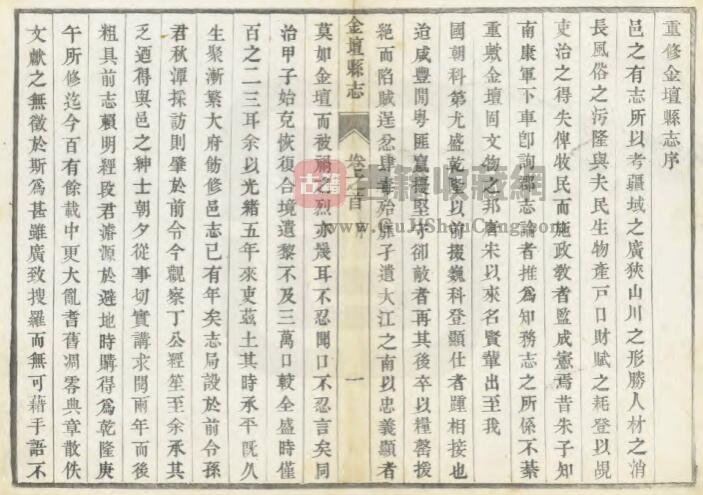 重修金壇縣志序
邑之有志所以考疆域之廣狹山川之形勝人材之消
長風俗之污隆與夫民生物產戸口財賦之耗登以覘
吏治之得失俾牧民而施政教者監成憲焉昔朱子知
南康軍下車卽詢郡志論者推爲知務志之所係不綦
重歟金壇固文物之邦若宋以來名賢輩出至我
國朝科第尤盛乾隆以前掇巍科登顯仕者踵相接也
迨咸豐閒粤匪竄擾堅守卻敵者再其後卒以糧罄援
絕而陷賊逞忿肆毒殆靡孑遺大江之南以忠義顯者
金壇縣志
卷之首
序
一
莫如金壇而被禍之烈亦幾耳不忍聞口不忍言矣同
治甲子始克恢復合境遺黎不及三萬口較全盛時僅
百之二三耳余以光緒五年來吏茲土其時承平旣久
生聚漸繁大府飭修邑志已有年矣志局設於前令孫
君秋潭採訪則肇於前令今觀察丁公經笙至余承其
乏迺得與邑之紳士朝夕從事切實講求閱兩年而後
粗具前志賴明經段君濬源於避地時購得爲乾隆庚
午所修迄今百有餘載中更大亂耆舊凋零典章散佚
文獻之無徵於斯爲甚雖廣致搜羅而無可藉手語不
古籍收藏網
www.GuJiShouCang.com